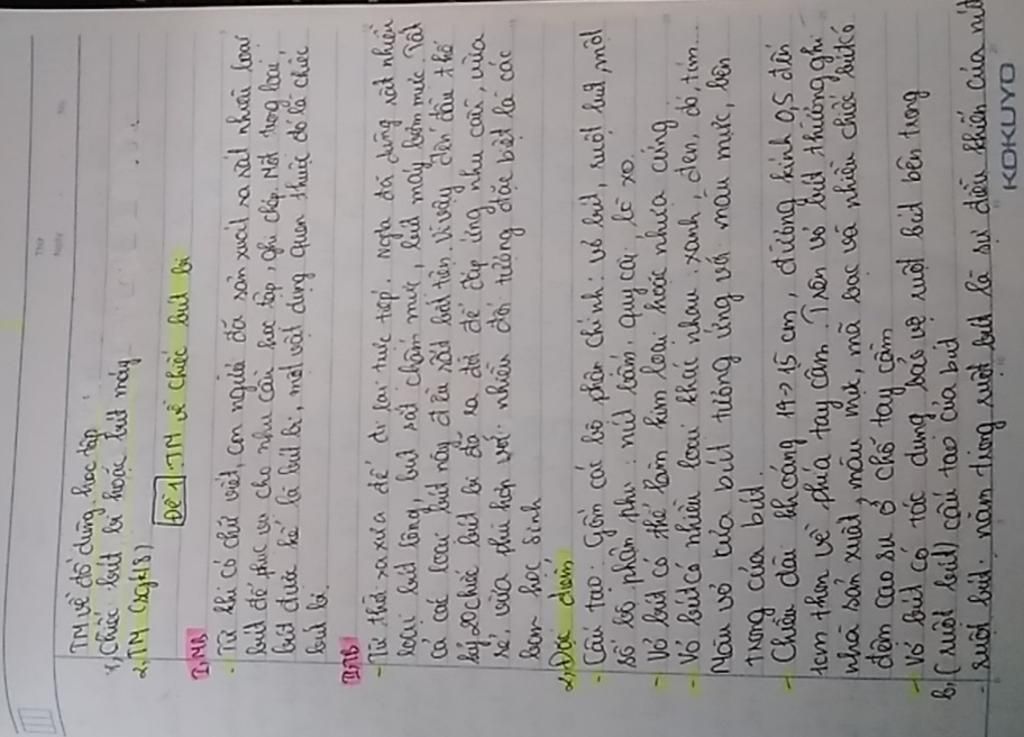 Thứ
Ngày
No.
TM về đồ dùng học tập
1, Chiếc bút bi hoặc bút máy
2, TM (sgk 8)
Đề 1: TM về chiếc bút bi
I, MB
- Từ khi có chữ viết, con người đã sản xuất ra rất nhiều loại
bút để phục vụ cho nhu cầu học tập, ghi chép. Một trong loại
bút được kể là bút bi, một vật dụng quen thuộc đó là chiếc
bút bi
II, TB
- Từ thời xa xưa để đi lại trực tiếp. Ngta đã dùng rất nhiều
loại bút lông, bút sắt chấm mực, bút máy bơm mực. Tất
cả các loại bút này đều rất bất tiện. Vì vậy đến đầu thế
kỷ 20 chiếc bút bi đã ra đời để đáp ứng nhu cầu, vừa
rẻ, vừa phù hợp với nhiều đối tượng, đặc biệt là các
bạn học sinh
2, Đặc điểm
- Cấu tạo: Gồm các bộ phận chính: vỏ bút, ruột bút, một
số bộ phận phụ: nút bấm, quy cài, lò xo.
- Vỏ bút có thể làm kim loại hoặc nhựa cứng
- Vỏ bút có nhiều loại khác nhau: xanh, đen, đỏ, tím...
Màu vỏ của bút tương ứng với màu mực, bên
trong của bút.
- Chiều dài khoảng 14->15 cm, đường kính 0,5 đến
1cm thon về phía tay cầm. Trên vỏ bút thường ghi
nhà sản xuất, màu mực, mã bạc và nhiều chiếc bút có
đệm cao su ở chỗ tay cầm
- Vỏ bút có tác dụng bảo vệ ruột bút bên trong
b, (ruột bút) cấu tạo của bút
- ruột bút: nằm trong ruột bút là sự điều khiển của nút
KOKUYO